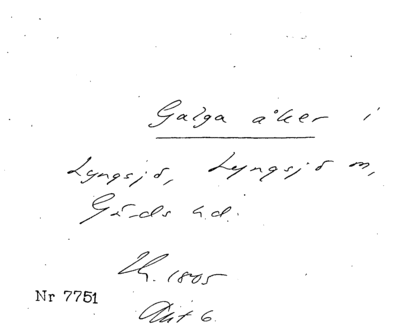 Galga åker i
Lyngsjö, Lyngsjö sn,
Gärds hd.
Lh. 1805
Nr 7751
Akt 6